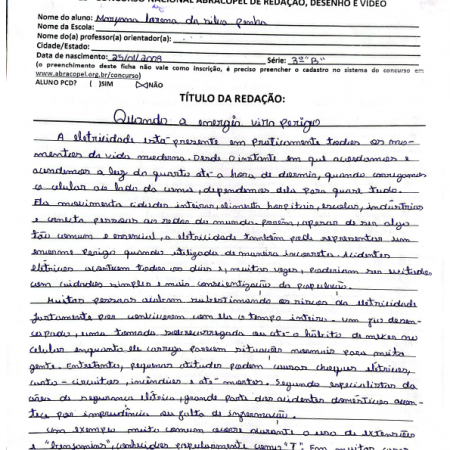 CONCURSO NACIONAL ABRACOPEL DE REDAÇÃO, DESENHO E VÍDEO
Nome do aluno: Maryanna Lorena da Silva Penha
Nome da Escola:
Nome do(a) professor(a) orientador(a):
Cidade/Estado:
Data de nascimento: 25/01/2009 Série: 3º "B"
(o preenchimento desta ficha não vale como inscrição, é preciso preencher o cadastro no sistema do concurso em
www.abracopel.org.br/concurso)
ALUNO PCD? ( )SIM (X)NÃO
TÍTULO DA REDAÇÃO:
Quando a energia vira perigo
A eletricidade está presente em praticamente todos os mo-
mentos da vida moderna. Desde o instante em que acordamos e
acendemos a luz do quarto até a hora de dormir, quando carregamos
o celular ao lado da cama, dependemos dela para quase tudo.
Ela movimenta cidades inteiras, alimenta hospitais, escolas, indústrias
e conecta pessoas ao redor do mundo. Porém, apesar de ser algo
tão comum e essencial, a eletricidade também pode representar um
enorme perigo quando utilizada de maneira incorreta. Acidentes
elétricos acontecem todos os dias e, muitas vezes, poderiam ser evitados
com cuidados simples e mais conscientização da população.
Muitas pessoas acabam subestimando os riscos da eletricidade
justamente por conviverem com ela o tempo inteiro. Um fio desen-
capado, uma tomada sobrecarregada ou até o hábito de mexer no
celular enquanto ele carrega parecem situações normais para muita
gente. Entretanto, pequenas atitudes podem causar choques elétricos,
curto-circuitos, incêndios e até mortes. Segundo especialistas da
área de segurança elétrica, grande parte dos acidentes domésticos acon-
tece por imprudência ou falta de informação.
Um exemplo muito comum ocorre durante o uso de extensões
e "benjamins", conhecidos popularmente como "T". Em muitas casas